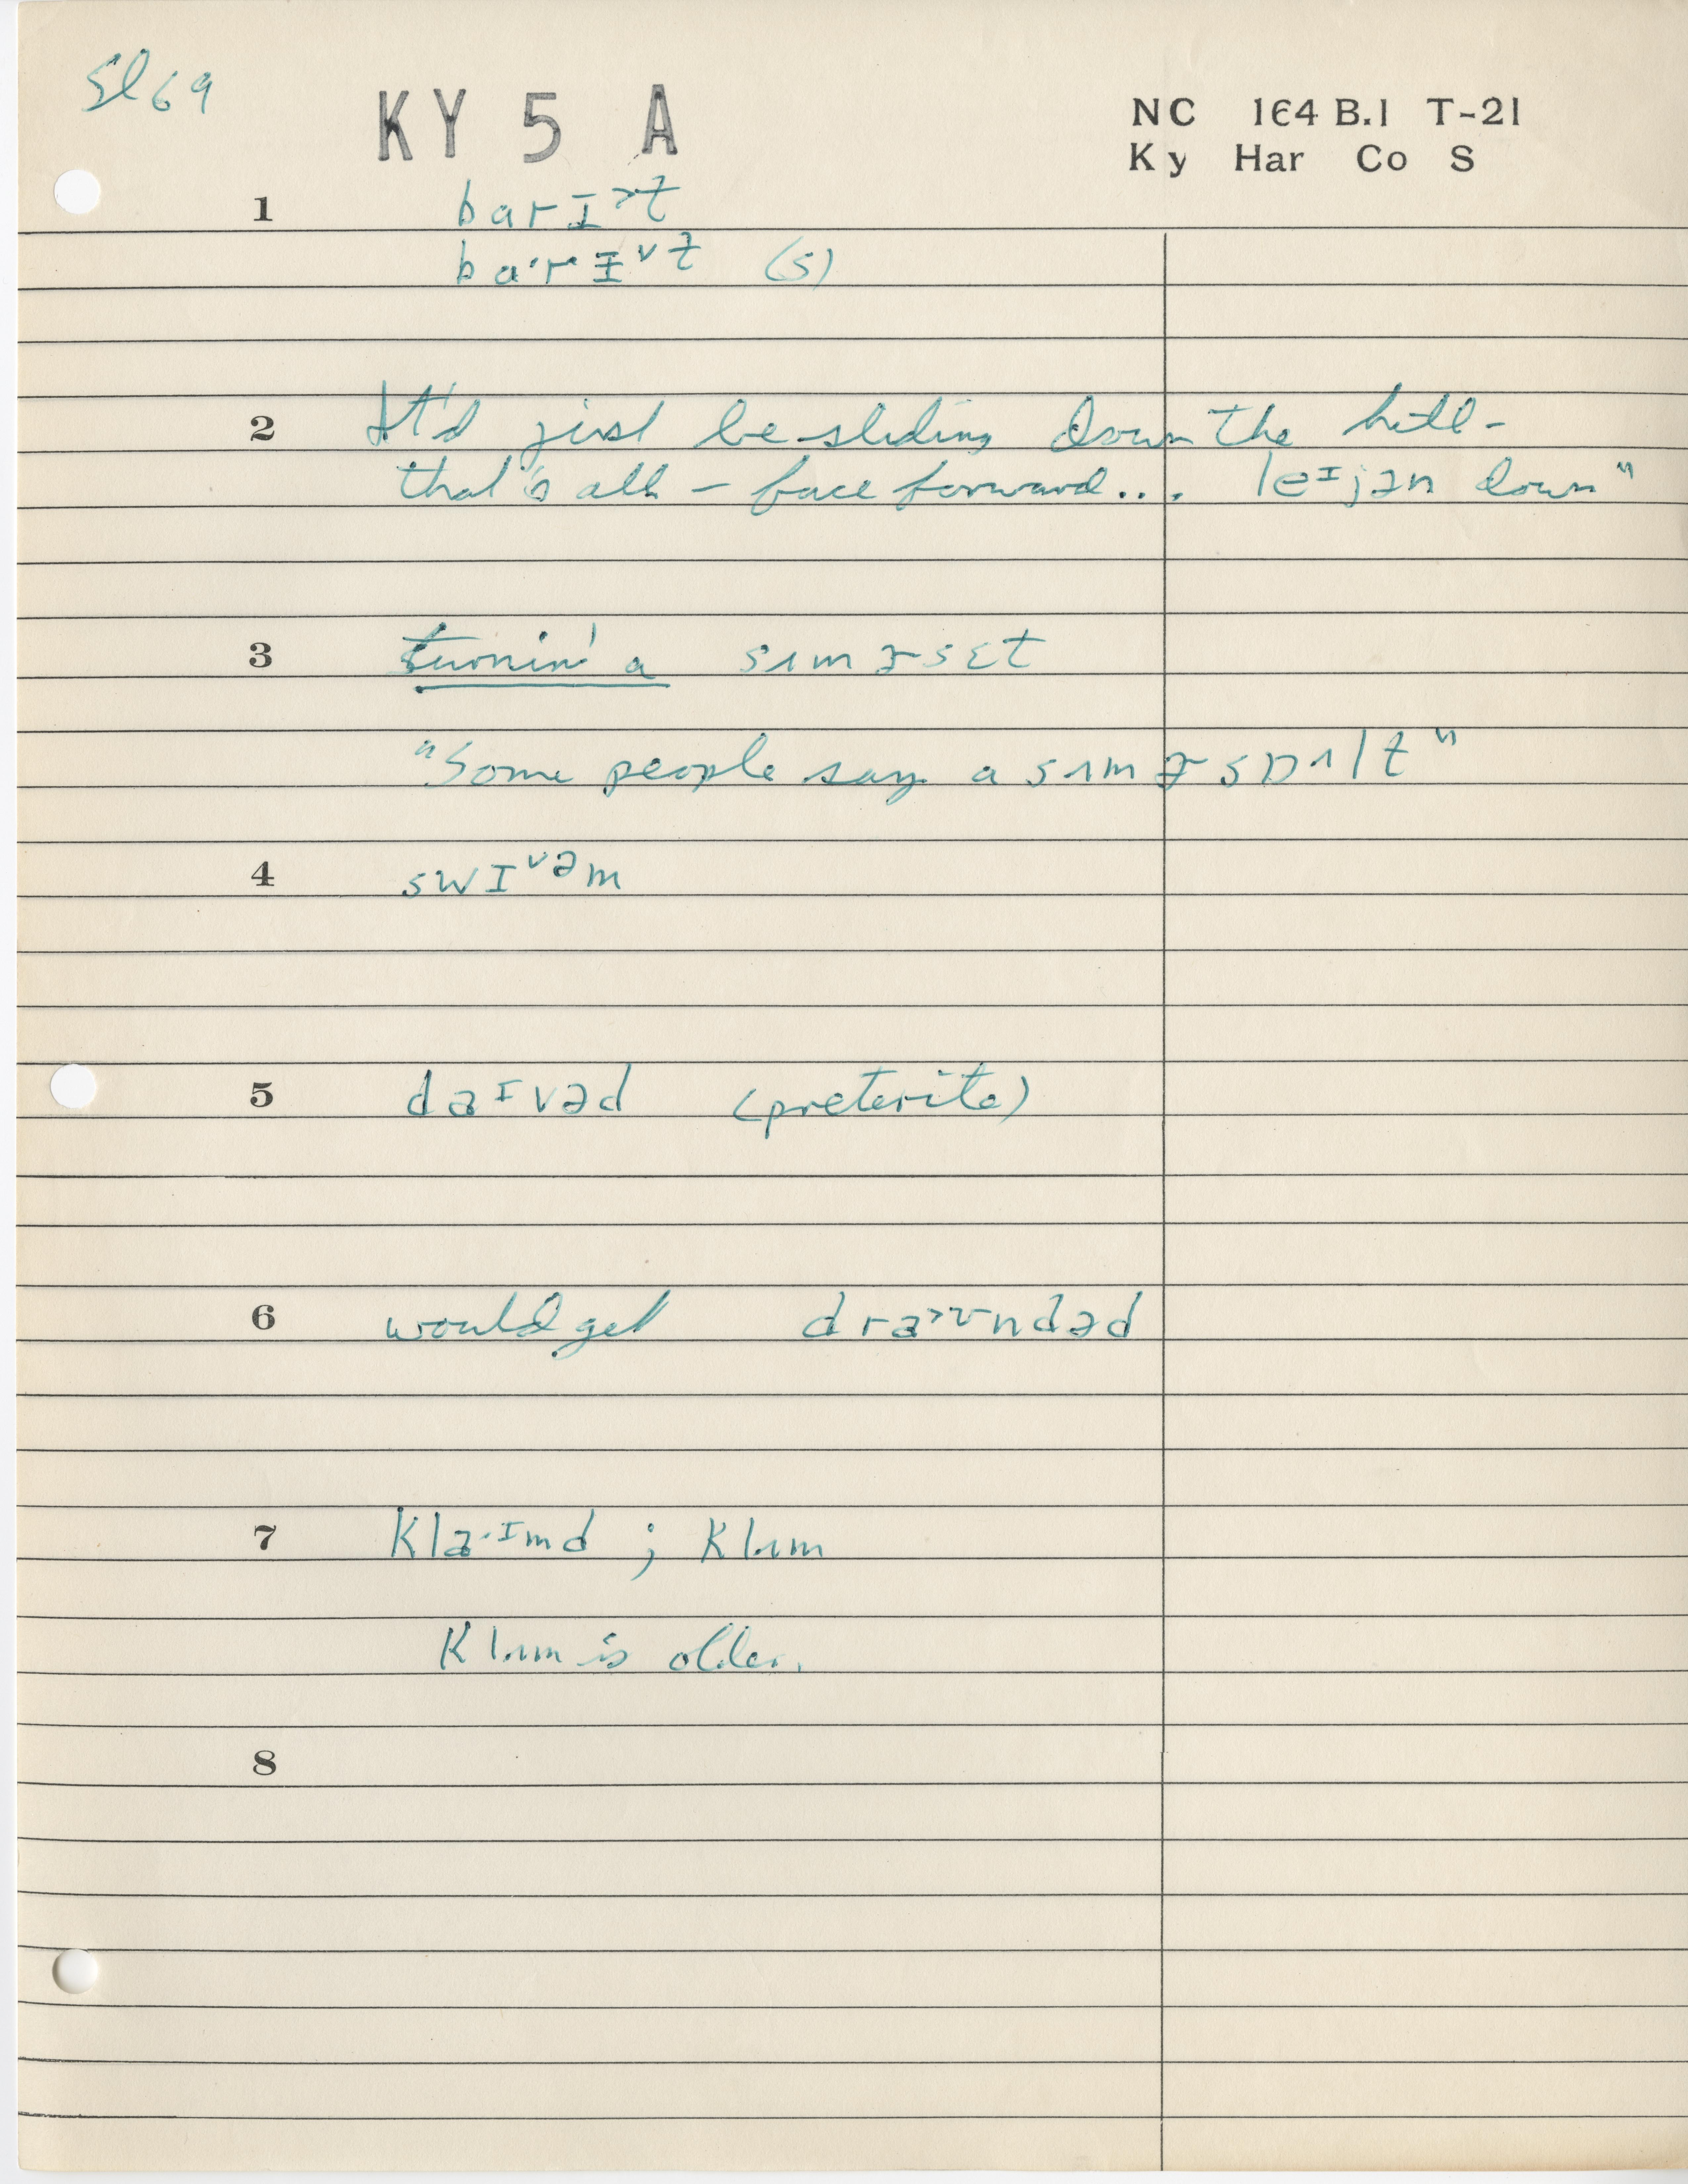 Sl69
KY 5 A
NC 164 B.1 T-21
Ky Har Co S
1 barɪ˃t̬
baˑrɪᵛt̬ (s)
2 It'd just be sliding down the hill-
that's all - face forward... leᶦjən down"
3 turnin' a sʌmɚsɛt
"Some people say a sʌmɚsɒˑlt̬"
4 swɪᵛᵊm
5 daᶦvəd (preterite)
6 would get dra˃ᶷndəd
7 klaˑᶦmd ; klʌm
klʌm is older.
8